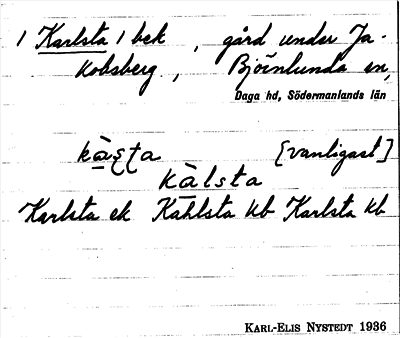 1 Karlsta 1 bek , gård under Ja-
kobsberg , Björnlunda sn,
Daga hd, Södermanlands län
kàs̨t̨a [vanligast]
kàlsta
Karlsta ek Kahlsta kb Karlsta kb
KARL-ELIS NYSTEDT 1936